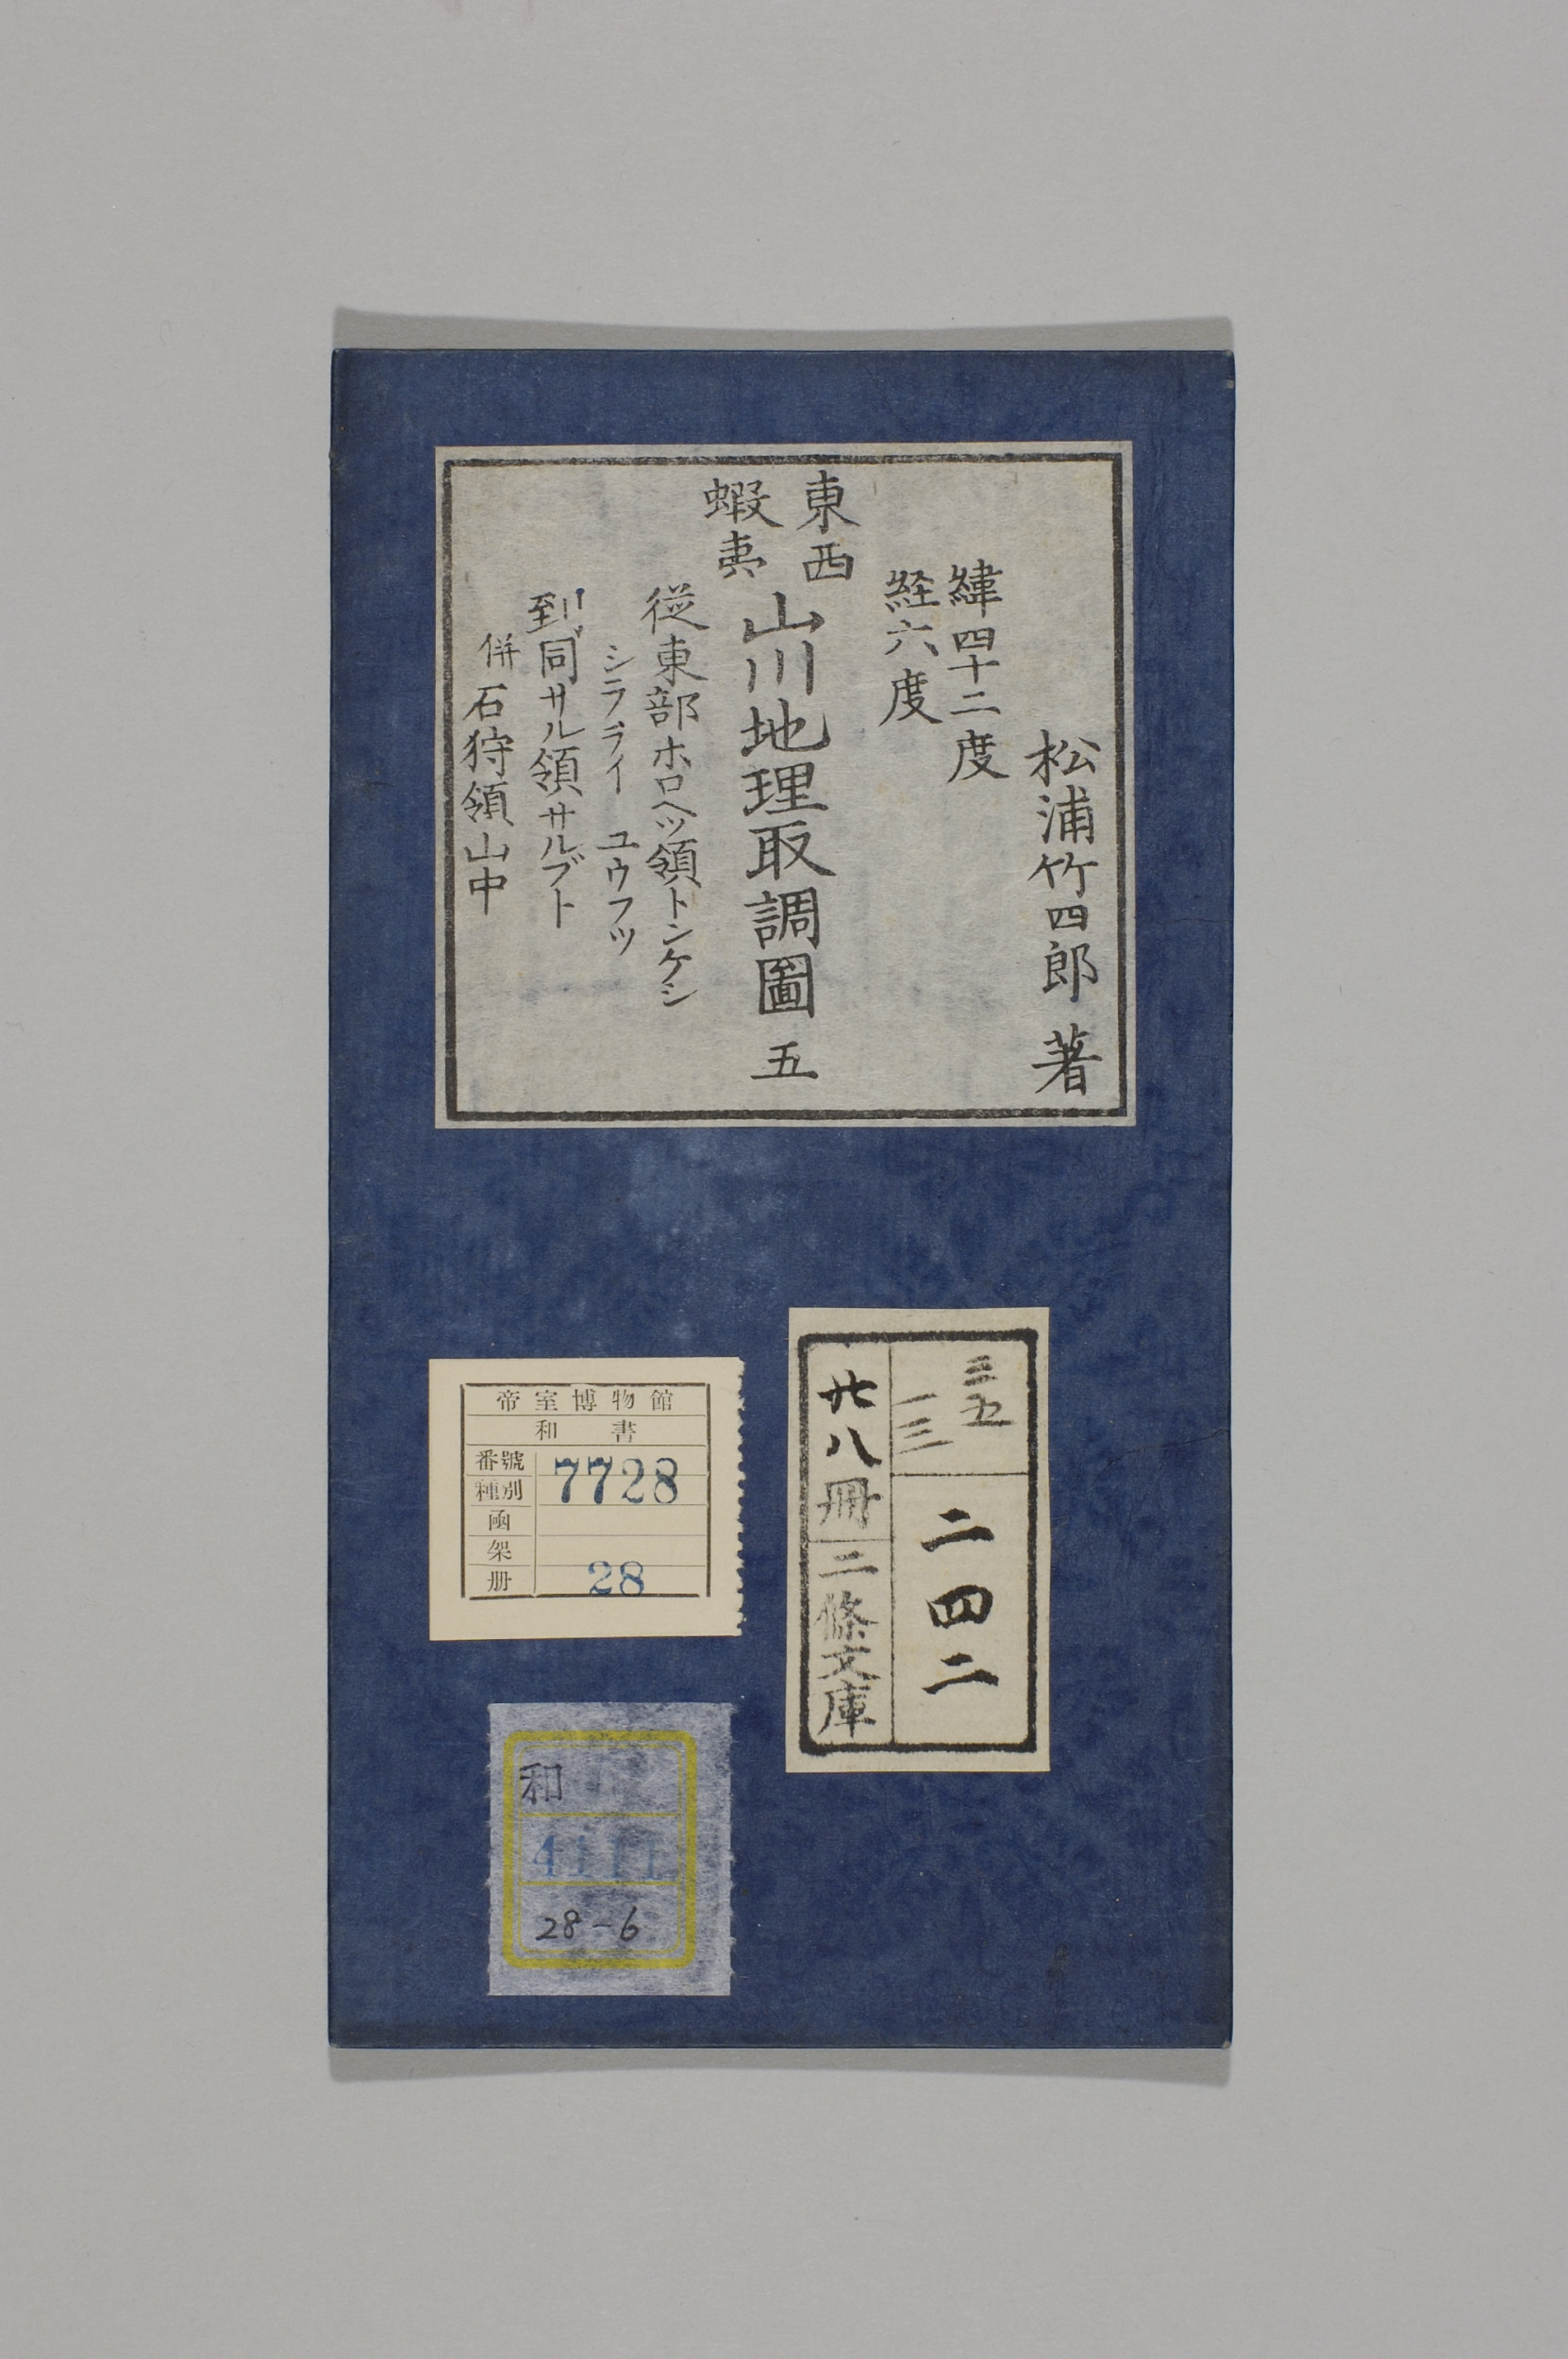 松浦竹四郎 著
緯四十二度
経六度
東西
蝦夷
山川地理取調圖 五
従東部ホロヘツ領トンケシ
シラライ ユウフツ
到同サル領サルブト
併石狩領山中
三五
一三
二四二
廿八冊
二條文庫
帝室博物館
和書
番號 7728
種別
函
架
册 28
和
4111
28-6